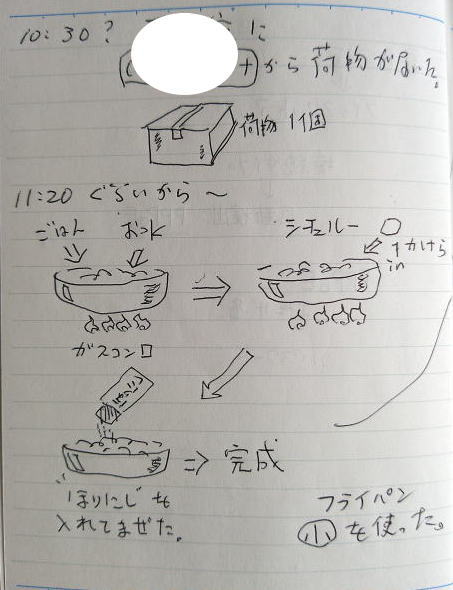 10:30? に
から荷物が届いた。
荷物 1個
11:20 ぐらいから〜
ごはん
シチュルー
1かけら
in
ガスコンロ
⇒ 完成
"ほりにし"も
入れてまぜた。
フライパン
小を使った。